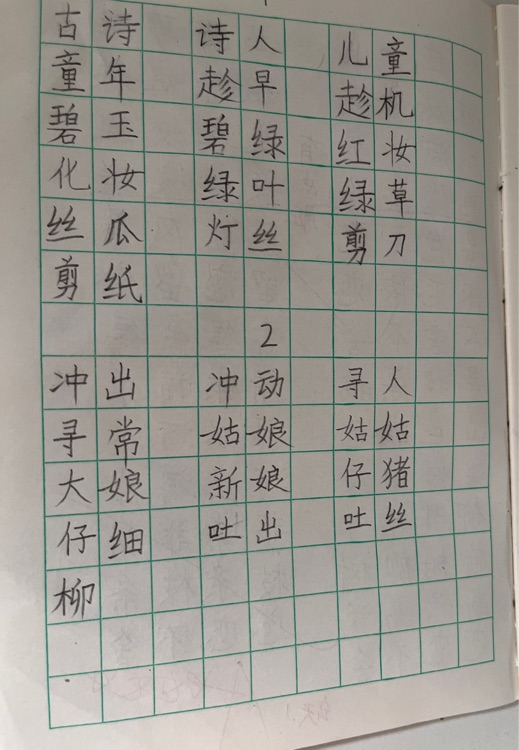 古诗 诗人 儿童
童年 趁早 趁机
碧玉 碧绿 红妆
化妆 绿叶 绿草
丝瓜 灯丝 剪刀
剪纸
2
冲出 冲动 寻人
寻常 姑娘 姑姑
大娘 新娘 仔猪
仔细 吐出 吐丝
柳